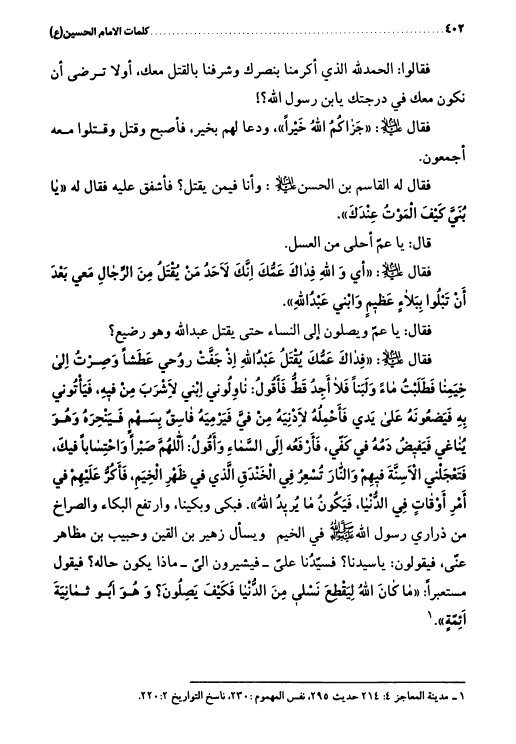 ٤٠٢ ........ كلمات الامام الحسين(ع)
فقالوا: الحمدلله الذي أكرمنا بنصرك وشرفنا بالقتل معك، أولا تـرضى أن
نكون معك في درجتك يابن رسول الله؟!
فقال ﷷ: «جَزٰاكُمُ اللهُ خَيْراً»، ودعا لهم بخير، فأصبح وقتل وقـتلوا مـعه
أجمعون.
فقال له القاسم بن الحسن ﷷ: وأنا فيمن يقتل؟ فأشفق عليه فقال له «يٰا
بُنَيَّ كَيْفَ الْمَوْتُ عِنْدَكَ».
قال: يا عمّ أحلى من العسل.
فقال ﷷ: «أي وَ اللهِ فِدٰاكَ عَمُّكَ إِنَّكَ لَاَحَدُ مَنْ يُقْتَلُ مِنَ الرِّجٰالِ مَعي بَعْدَ
أَنْ تَبْلُوا بِبَلٰاءٍ عَظيمٍ وَابْني عَبْدُاللهِ».
فقال: يا عمّ ويصلون إلى النساء حتى يقتل عبدالله وهو رضيع؟
فقال ﷷ: «فِدٰاكَ عَمُّكَ يُقْتَلُ عَبْدُاللهِ إِذْ جَفَّتْ رُوحي عَطَشاً وَصِرْتُ اِلىٰ
خِيَمِنٰا فَطَلَبْتُ مٰاءً وَلَبَناً فَلاٰ أَجِدُ قَطُّ فَأَقُولُ: نٰاوِلُوني اِبْني لِاَشْرَبَ مِنْ فيهِ، فَيَأْتُوني
بِهِ فَيَضَعُونَهُ عَلىٰ يَدي فَاَحْمِلُهُ لِاُدْنِيَهُ مِنْ فيَّ فَيَرْميهِ فٰاسِقٌ بِسَـهْمٍ فَـيَنْحِرُهُ وَهُـوَ
يُنٰاغي فَيَفيضُ دَمُهُ في كَفّي، فَأَرْفَعُهُ اِلَى السَّمٰاءِ وَاَقُولُ: اَللّٰهُمَّ صَبْراً وَاحْتِسٰاباً فيكَ،
فَتَعْجَلُنِي الْاَسِنَّةُ فيهِمْ وَالنّٰارُ تُسْعِرُ فِي الْخَنْدَقِ الَّذي في ظَهْرِ الْخِيَمِ، فَأَكُرُّ عَلَيْهِمْ في
أَمْرِ أَوْقٰاتٍ فِي الدُّنْيٰا، فَيَكُونُ مٰا يُريدُ اللهُ». فبكى وبكينا، وارتفع البكاء والصراخ
من ذراري رسول الله ﷺ في الخيم ويسأل زهير بن القين وحبيب بن مظاهر
عنّي، فيقولون: ياسيدنا؟ فسيّدُنا عليّ ـ فيشيرون اليّ ـ ماذا يكون حاله؟ فيقول
مستعبراً: «مٰا كٰانَ اللهُ لِيَقْطَعَ نَسْلي مِنَ الدُّنْيٰا فَكَيْفَ يَصِلُونَ؟ وَ هُـوَ اَبُـو ثَمـٰانِيَةَ
اَئِمَّةٍ».١
١ ـ مدينة المعاجز ٤: ٢١٤ حديث ٢٩٥، نفس المهموم: ٢٣٠، ناسخ التواريخ ٢: ٢٢٠.